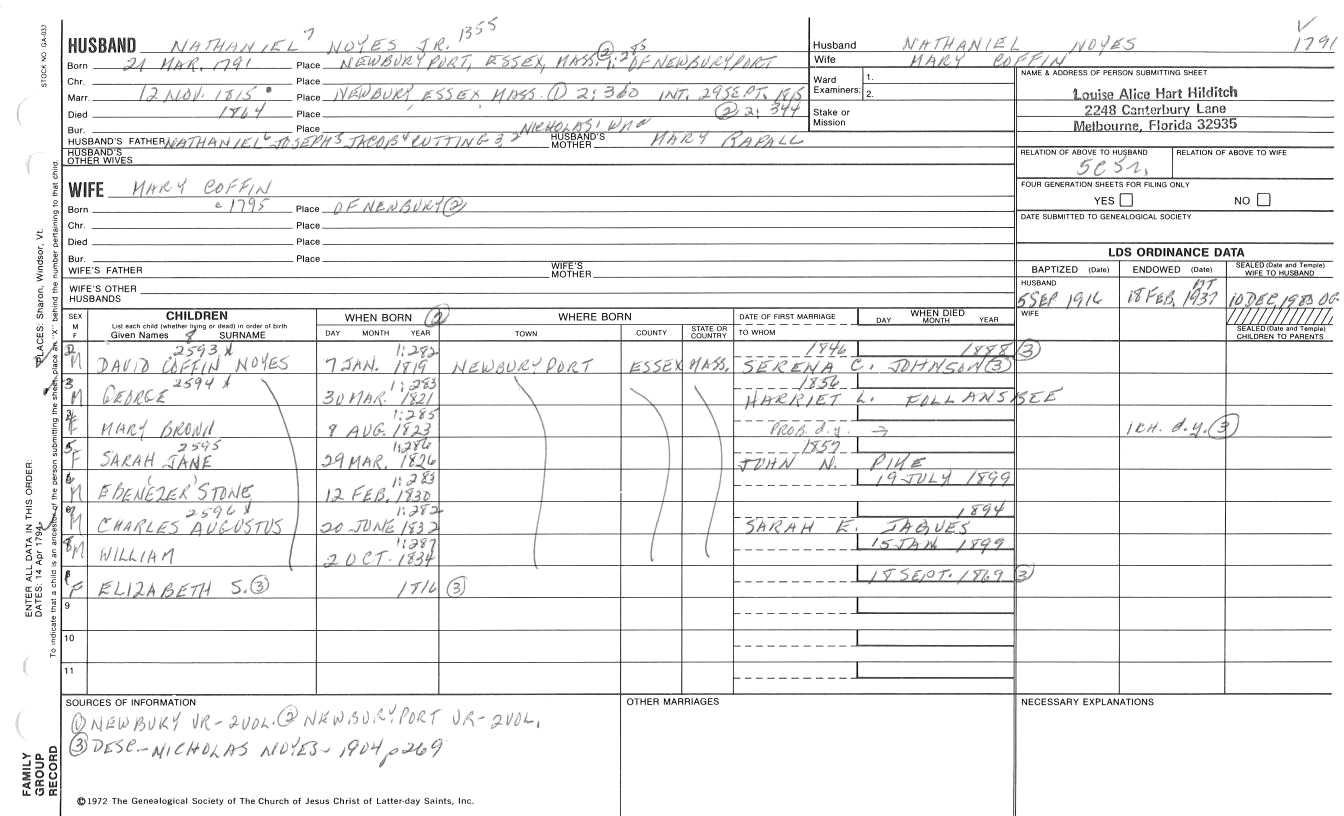 HUSBAND NATHANIEL 7 NOYES JR. 1355
Born 21 MAR. 1791 Place NEWBURYPORT, ESSEX, MASS. ② 1:285 OF NEWBURYPORT
Chr. Place
Marr. 12 NOV. 1815 Place NEWBURY, ESSEX MASS. ① 2; 360 INT. 29 SEPT. 1815
Died 1864 Place ② 2; 344
Bur. Place
HUSBAND'S FATHER NATHANIEL 6 JOSEPH 5 JACOB 4 CUTTING 3, 2 NICHOLAS 1 HUSBAND'S MOTHER MARY RAPALL
HUSBAND'S OTHER WIVES
WIFE MARY COFFIN
Born c 1795 Place OF NEWBURY ②
Chr. Place
Died Place
Bur. Place
WIFE'S FATHER WIFE'S MOTHER
WIFE'S OTHER HUSBANDS
Husband NATHANIEL NOYES 1791
Wife MARY COFFIN
Ward Examiners: 1. 2.
Stake or Mission
NAME & ADDRESS OF PERSON SUBMITTING SHEET
Louise Alice Hart Hilditch
2248 Canterbury Lane
Melbourne, Florida 32935
RELATION OF ABOVE TO HUSBAND RELATION OF ABOVE TO WIFE
5C5r.
FOUR GENERATION SHEETS FOR FILING ONLY
YES NO
DATE SUBMITTED TO GENEALOGICAL SOCIETY
LDS ORDINANCE DATA
BAPTIZED (Date) ENDOWED (Date) SEALED (Date and Temple) WIFE TO HUSBAND
HUSBAND
5 SEP 1916 18 FEB, 1937 10 DEC, 1983 OG
WIFE
SEALED (Date and Temple) CHILDREN TO PARENTS
SEX M F CHILDREN WHEN BORN ② WHERE BORN DATE OF FIRST MARRIAGE WHEN DIED
List each child (whether living or dead) in order of birth
Given Names 8 SURNAME DAY MONTH YEAR TOWN COUNTY STATE OR COUNTRY TO WHOM DAY MONTH YEAR
2593 X 1:282 1846 1888 ③
M DAVID COFFIN NOYES 7 JAN. 1819 NEWBURYPORT ESSEX MASS. SERENA C. JOHNSON ③
2594 X 1:283 1856
M GEORGE 30 MAR. 1821 HARRIET L. FOLLANSBEE
1:285
F MARY BROWN 9 AUG. 1823 PROB. d.y. → 1 CH. d.y. ③
2595 1:286 1857
F SARAH JANE 29 MAR. 1826 JOHN N. PIKE
1:283 19 JULY 1899
M EBENEZER STONE 12 FEB. 1830
2596 X 1:282 1894
M CHARLES AUGUSTUS 20 JUNE 1832 SARAH E. JAQUES
1:287 15 JAN 1899
M WILLIAM 2 OCT. 1834
18 SEPT. 1869 ③
F ELIZABETH S. ③ 1816 ③
9
10
11
SOURCES OF INFORMATION
① NEWBURY VR - 2 VOL. ② NEWBURYPORT VR - 2 VOL.
③ DESC - NICHOLAS NOYES - 1904 p 269
OTHER MARRIAGES
NECESSARY EXPLANATIONS
© 1972 The Genealogical Society of The Church of Jesus Christ of Latter-day Saints, Inc.
STOCK NO. GA-033
PLACES: Sharon, Windsor, Vt.
ENTER ALL DATA IN THIS ORDER:
DATES: 14 Apr 1794
To indicate that a child is an ancestor of the person submitting the sheet, place an "X" behind the number pertaining to that child.
FAMILY GROUP RECORD